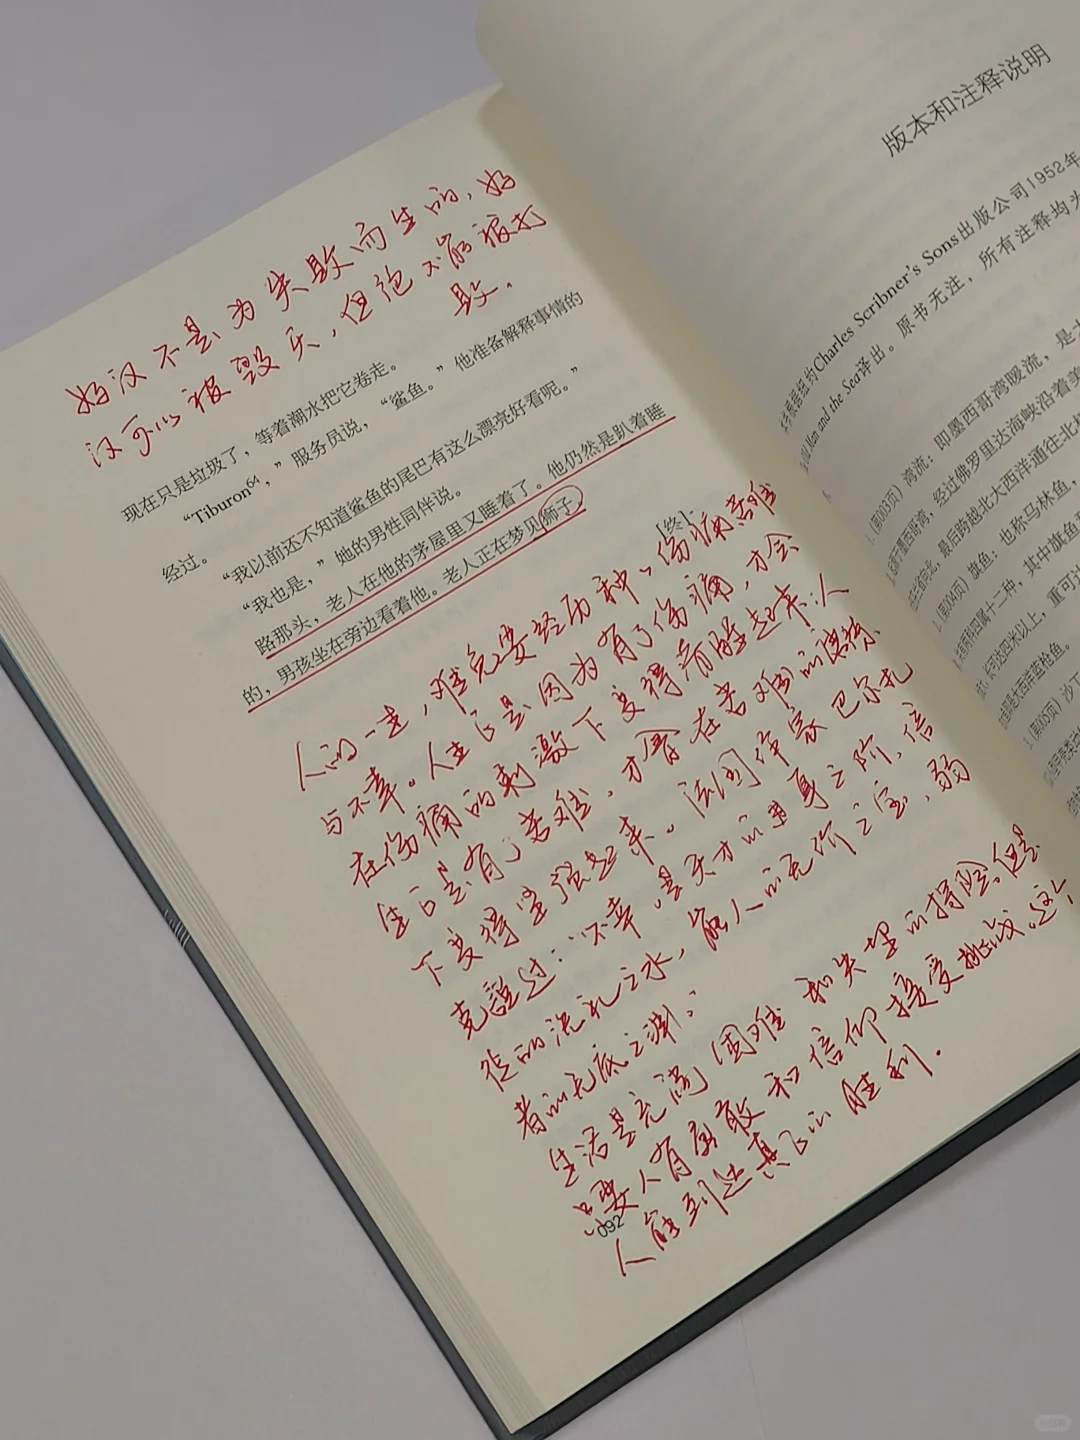 好汉不是为失败而生的，好
汉可以被毁灭，但绝不能被打
败。
现在只是垃圾了，等着潮水把它卷走。
“Tiburon64，”服务员说，“鲨鱼。”他准备解释事情的
经过。
“我以前还不知道鲨鱼的尾巴有这么漂亮好看呢。”
“我也是，”她的男性同伴说。
路那头，老人在他的茅屋里又睡着了。他仍然是趴着睡
的，男孩坐在旁边看着他。老人正在梦见狮子。
【终】
人的一生，难免要经历种种伤痛苦难
与不幸。人生正是因为有了伤痛，才会
在伤痛的刺激下变得清醒起来；人
生正是有了苦难，才会在苦难的磨练
下变得坚强起来。法国作家巴尔扎
克说过：“不幸，是天才的进身之阶，信
徒的洗礼之水，能人的无价之宝，弱
者的无底之渊。”
生活是充满困难和失望的探险。但是
只要人有勇敢和信仰接受挑战，这个
人能到达真正的胜利.
092
版本和注释说明
纽约Charles Scribner's Sons出版公司1952年
Man and the Sea译出。原书无注，所有注释均为
1.（第003页）湾流：即墨西哥湾暖流，是
墨西哥湾，经过佛罗里达海峡沿着美
向北，最后跨越北大西洋通往北极
1.（第004页）旗鱼：也称马林鱼，
四属十二种，其中旗鱼
长可达四米以上，重可
是大西洋蓝枪鱼。
1.（第005页）沙丁